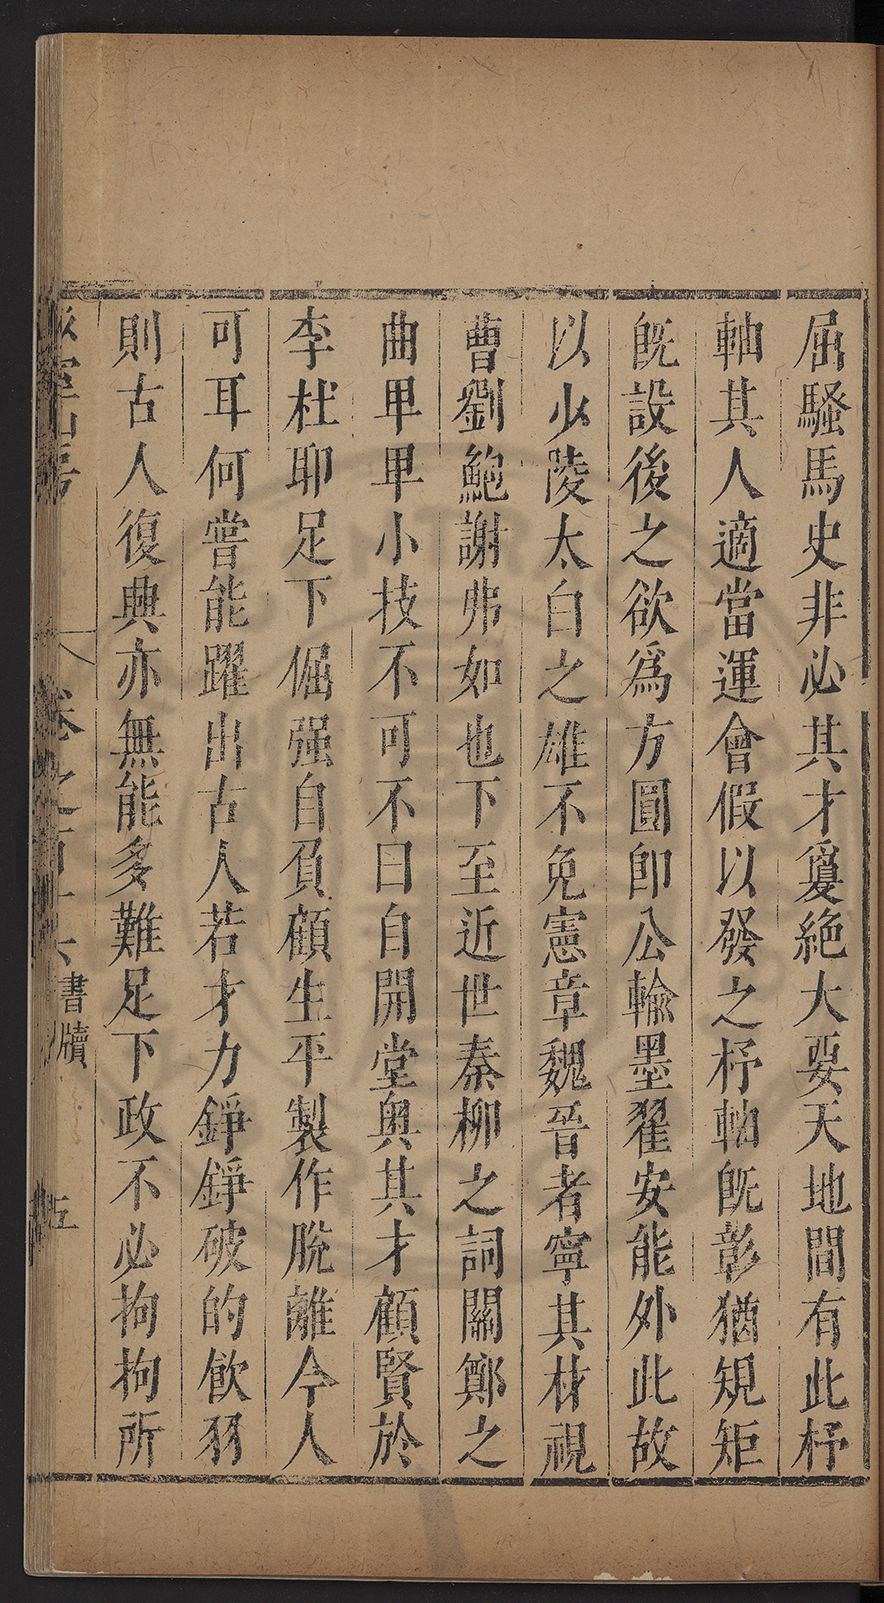 屈騷馬史非必其才敻絕大要天地間有此杼
軸其人適當運會假以發之杼軸旣彰猶規矩
旣設後之欲爲方圓卽公輸墨翟安能外此故
以少陵太白之雄不免憲章魏晉者寧其材視
曹劉鮑謝弗如也下至近世秦柳之詞關鄭之
曲卑卑小技不可不曰自開堂奧其才顧賢於
李杜耶足下倔强自負顧生平製作脫離今人
可耳何嘗能躍出古人若才力錚錚破的飲羽
則古人復典亦無能多難足下政不必拘拘所
山房
卷之百十六
書牘
五